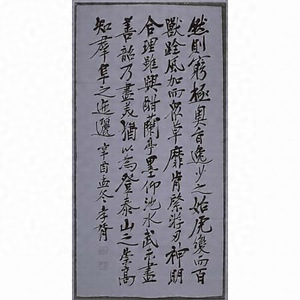 然則窮極奧旨逸少之始虎變而百
獸跧風加而衆草靡肯綮游刃神明
合理雖興酣蘭亭墨仰池水武未盡
善韶乃盡美猶以為登泰山之崇高
知羣阜之迤邐 辛酉孟冬李